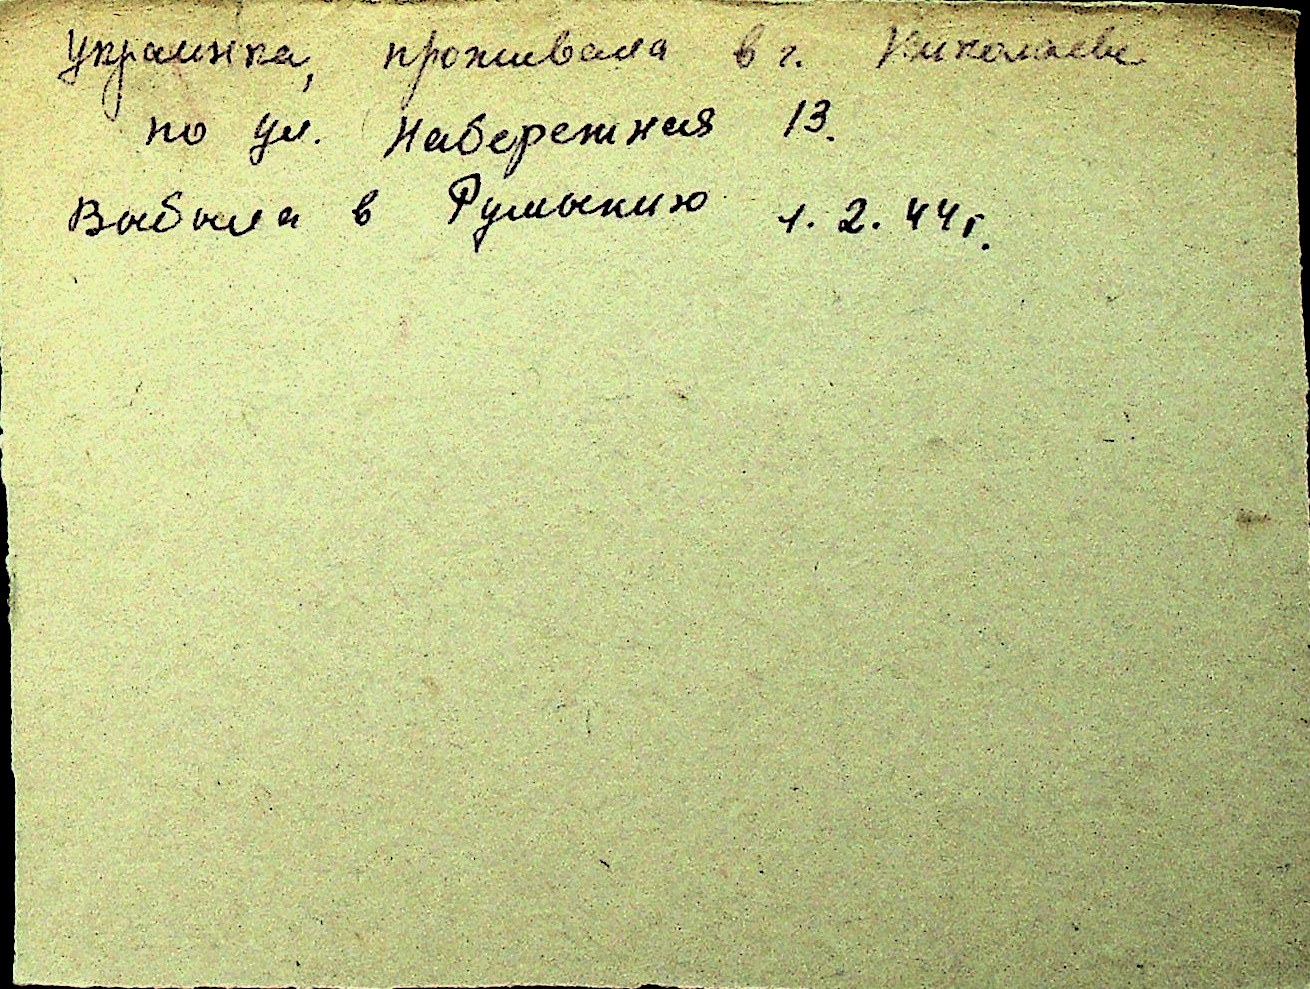 Украинка, проживала в г. Николаеве
по ул. Набережная 13.
Выбыла в Румынию 1.2.44г.